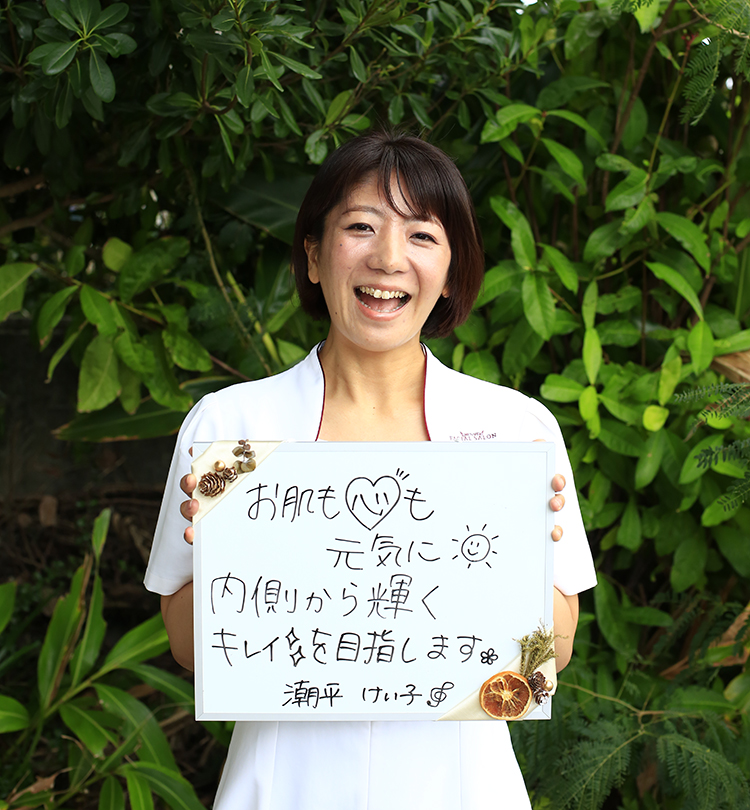 お肌も心も
元気に
内側から輝く
キレイを目指します。
潮平 けい子